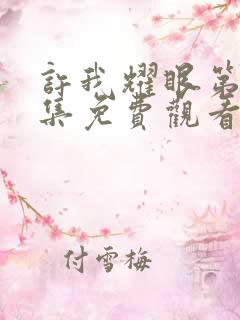 許我耀眼第
集免費觀看
付雪梅